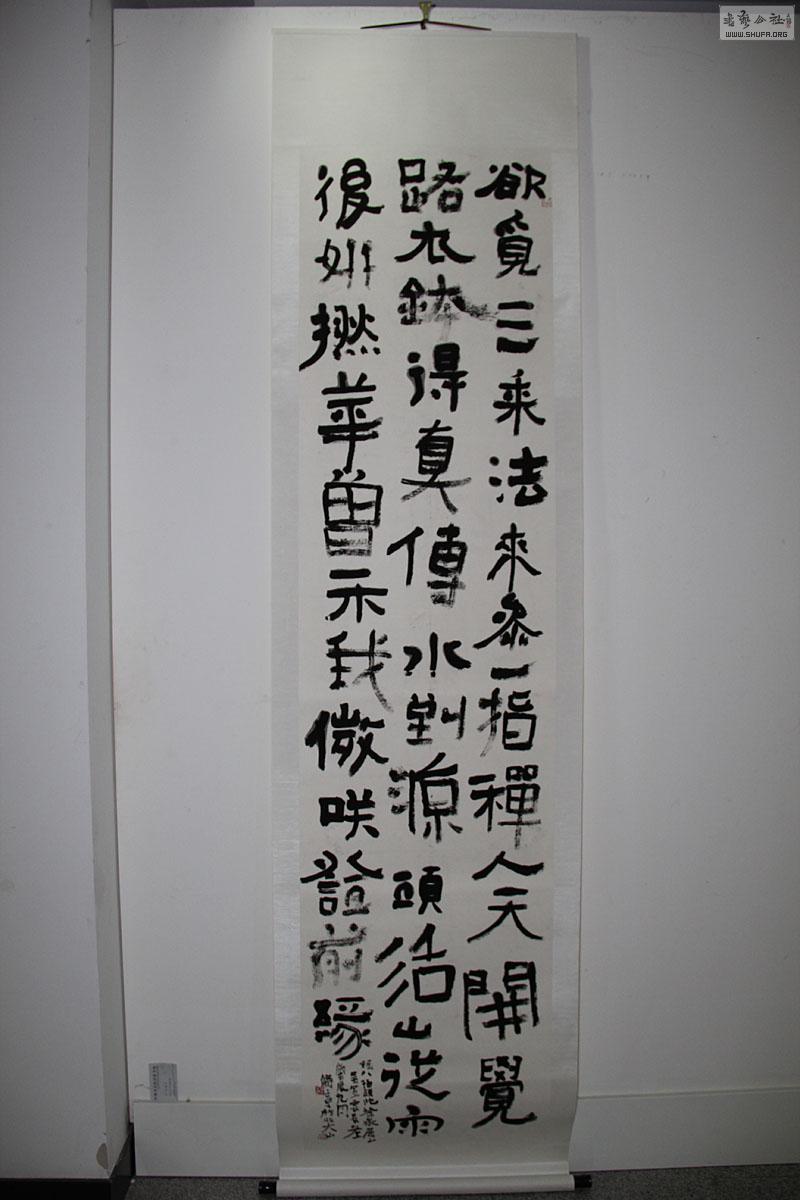 欲覓三乘法來參一指禪人天開覺
路衣鉢得真傳水到源頭活山從雨
後妍撚華曾示我微咲證前緣
WWW.SHUFA.ORG